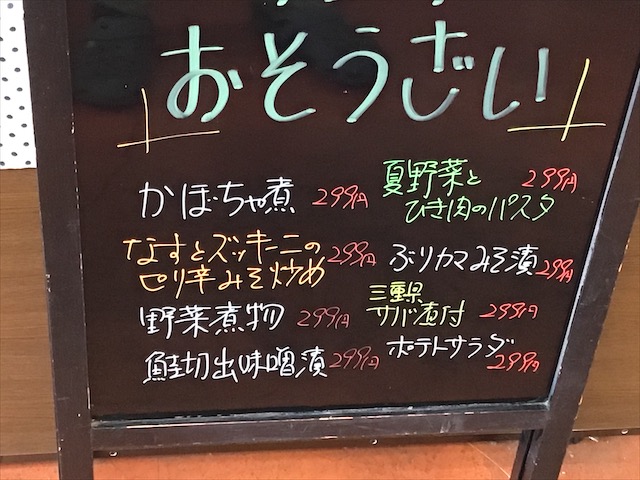 おそうざい
かぼちゃ煮 299円
なすとズッキーニの
ピリ辛みそ炒め 299円
野菜煮物 299円
鮭切出味噌漬 299円
夏野菜と
ひき肉のパスタ 299円
ぶりカマみそ漬 299円
三重県
サバ煮付 299円
ポテトサラダ
299円